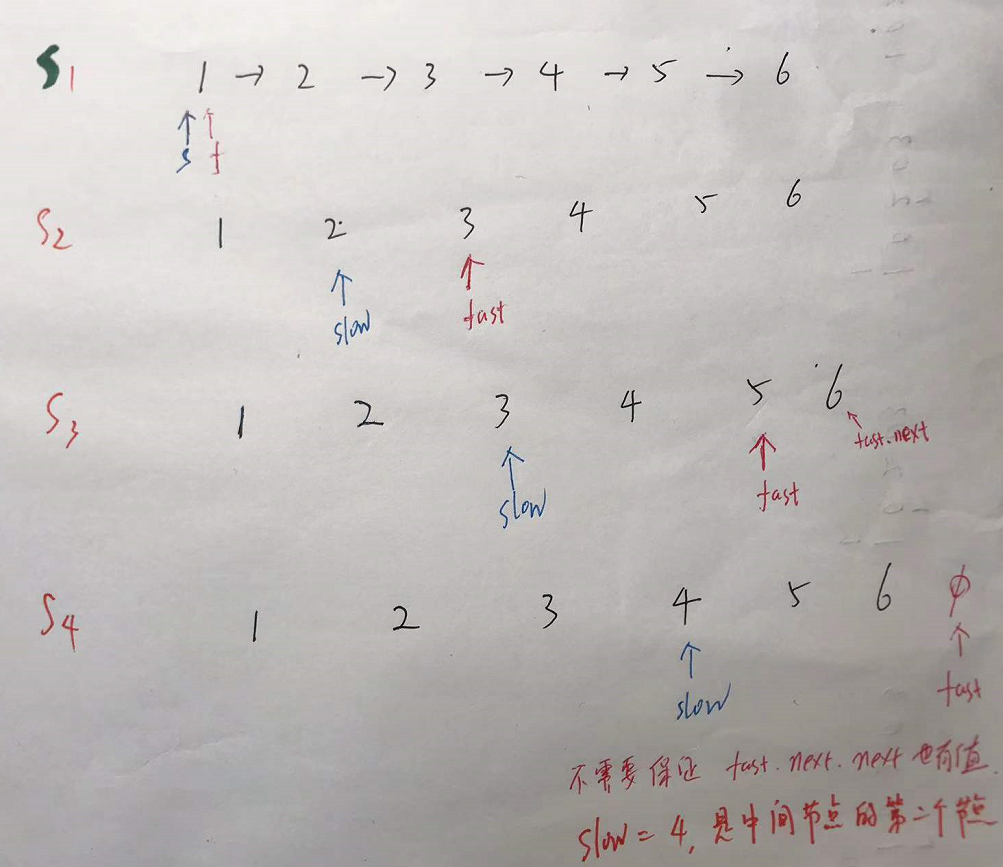 S1 1 → 2 → 3 → 4 → 5 → 6
s f
S2 1 2 3 4 5 6
slow fast
S3 1 2 3 4 5 6
fast.next
slow fast
S4 1 2 3 4 5 6 φ
slow fast
不需要保证 fast.next.next 也有值.
slow = 4, 是中间节点的第二个节点